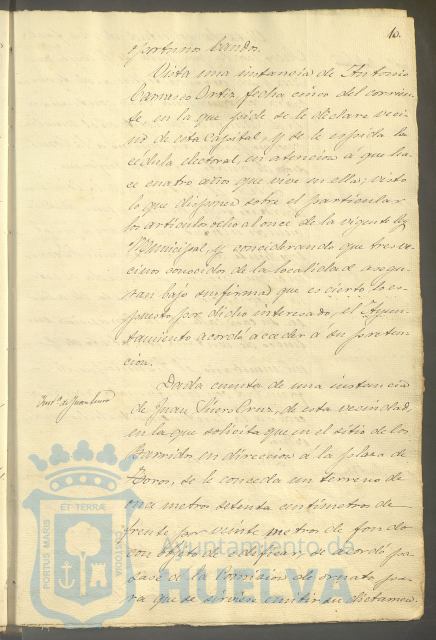 10.
oportuno bando.
Vista una instancia de Antonio
Carrasco Ortiz, fecha cinco del corrien-
te, en la que pide se le declare veci-
no de esta Capital, y se le espida la
cedula electoral, en atencion á que ha-
ce cuatro años que vive en ella; visto
lo que dispone sobre el particular
los articulos ocho al once de la vigente ley
Municipal, y considerando que tres ve-
cinos conocidos de la localidad asegu-
ran bajo su firma que es cierto lo es-
puesto por dicho interesado, el Ayun-
tamiento acordó acceder á su preten-
cion.
Dada cuenta de una instancia
de Juan Suero Cruz, de esta vecindad,
en la que solicita que en el sitio de los
en direccion á la plaza de
Toros, se le conceda un terreno de
metros setenta centimetros de
frente por veinte metros de fondo
con objeto de edificar, se acordó pa-
sase de la Comision de ornato pa-
ra que se sirvan emitir su dictamen.
Inst.ª de Juan Suero
PORTUS MARIS
ET TERRÆ
CUSTODIA
Ayuntamiento de
HUELVA